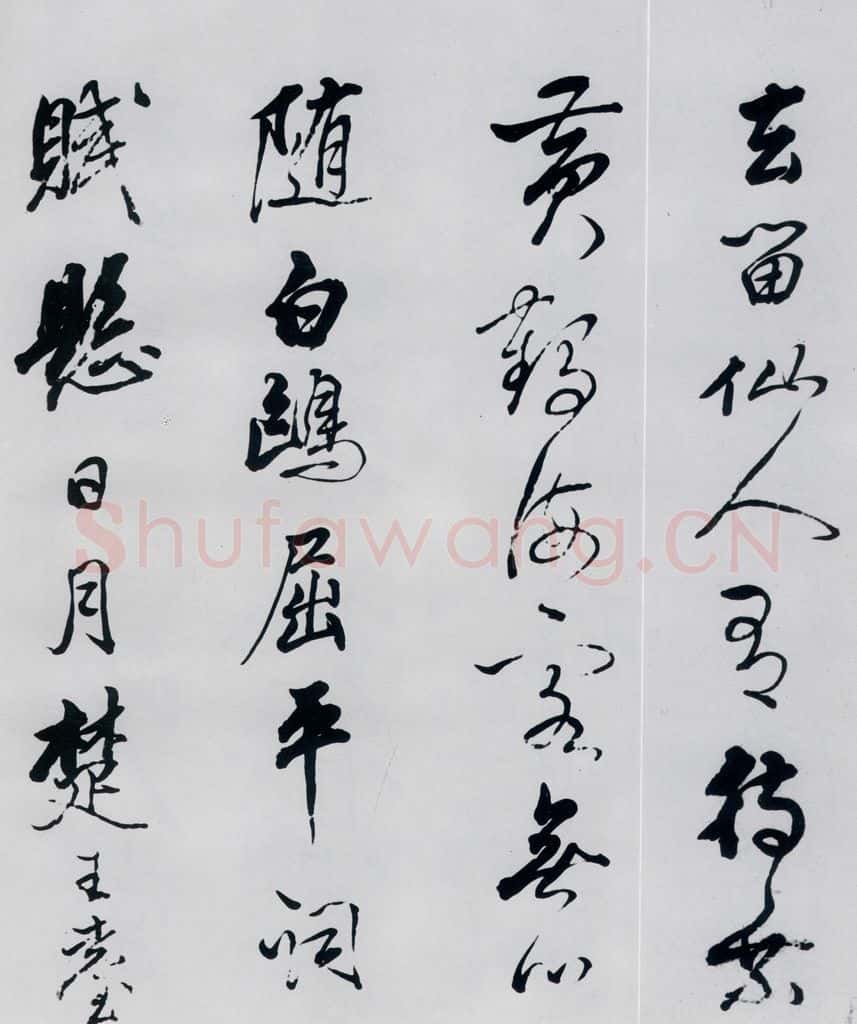 去留仙人有待乘
黄鹤海客無心
随白鸥屈平词
赋懸日月楚王臺
Shufawang.CN